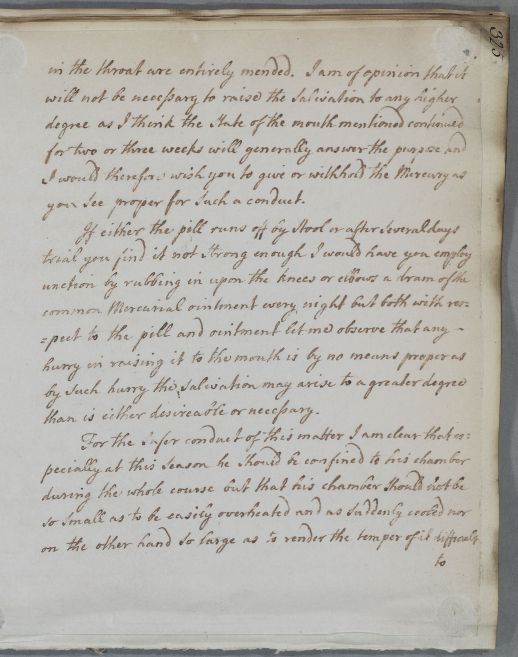 325
in the throat are entirely mended. I am of opinion that it
will not be necessary to raise the Salivation to any higher
degree as I think the State of the mouth mentioned continued
for two or three weeks will generally answer the purpose and
I would therefore wish you to give or withhold the Mercury as
you See proper for Such a conduct.
If either the pill runs off by Stool or after Several days
trial you find it not Strong enough I would have you employ
unction by rubbing in upon the knees or elbows a dram of the
common Mercurial ointment every night but both with res:
=pect to the pill and ointment let me observe that any
hurry in raising it to the mouth is by no means proper as
by Such hurry the Salivation may arise to a greater degree
than is either desireable or necessary.
For the Safer conduct of this matter I am clear that es:
pecially at this Season he Should be confined to his chamber
during the whole course but that his chamber Should not be
So Small as to be easily overheated and as Suddenly cooled nor
on the other hand So large as to render the temper of it difficult
to